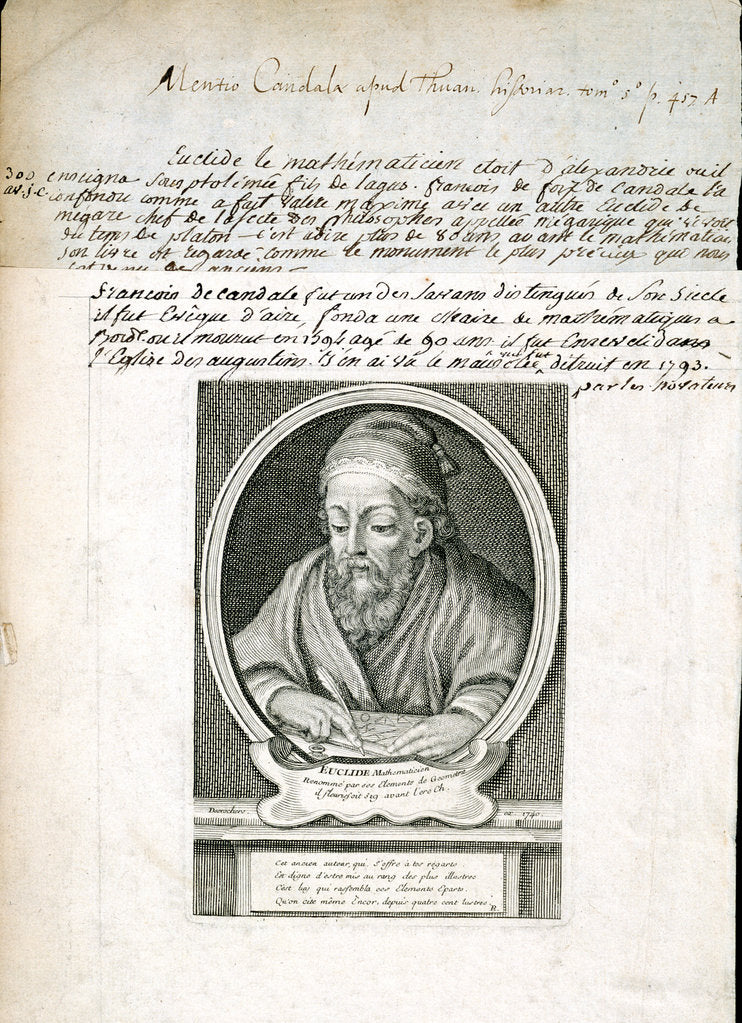 Mentio Candalæ apud Thuan. historiar. tom° 5° p. 457. A
Euclide le mathématicien etoit d'alexandrie ou il
300 av. j. C enseigna sous ptolémée fils de lagus. françois de foix de candale l'a
confondu comme a fait valere maxime avec un autre Euclide de
megare chef de la secte des philosophes appellée mégarique qui vivoit
du tems de platon c'est a dire plus de 80 ans avant le mathématicien
son livre est regardé comme le monument le plus précieux qui nous
françois de candale fut un des savans distingués de son siecle
il fut Evêque d'aire, fonda une chaire de mathématiques a
Bord. ou il mourut en 1594 agé de 90 ans il fut Enseveli dans
l'Eglise des augustins. j'en ai vu le mausolée qui fut détruit en 1793.
par les novateurs
EUCLIDE Mathematicien
Renommé par ses Elements de Geometrie
il fleurissoit 319 avant l'ere Ch.
Desrochers. ex. 1740.
Cet ancien auteur, qui s'offre à tes regarts
Est digne d'estre mis au rang des plus illustres
C'est luy qui rassembla ces Elements Eparts.
Qu'on cite même Encor, depuis quatre cent lustres
R.